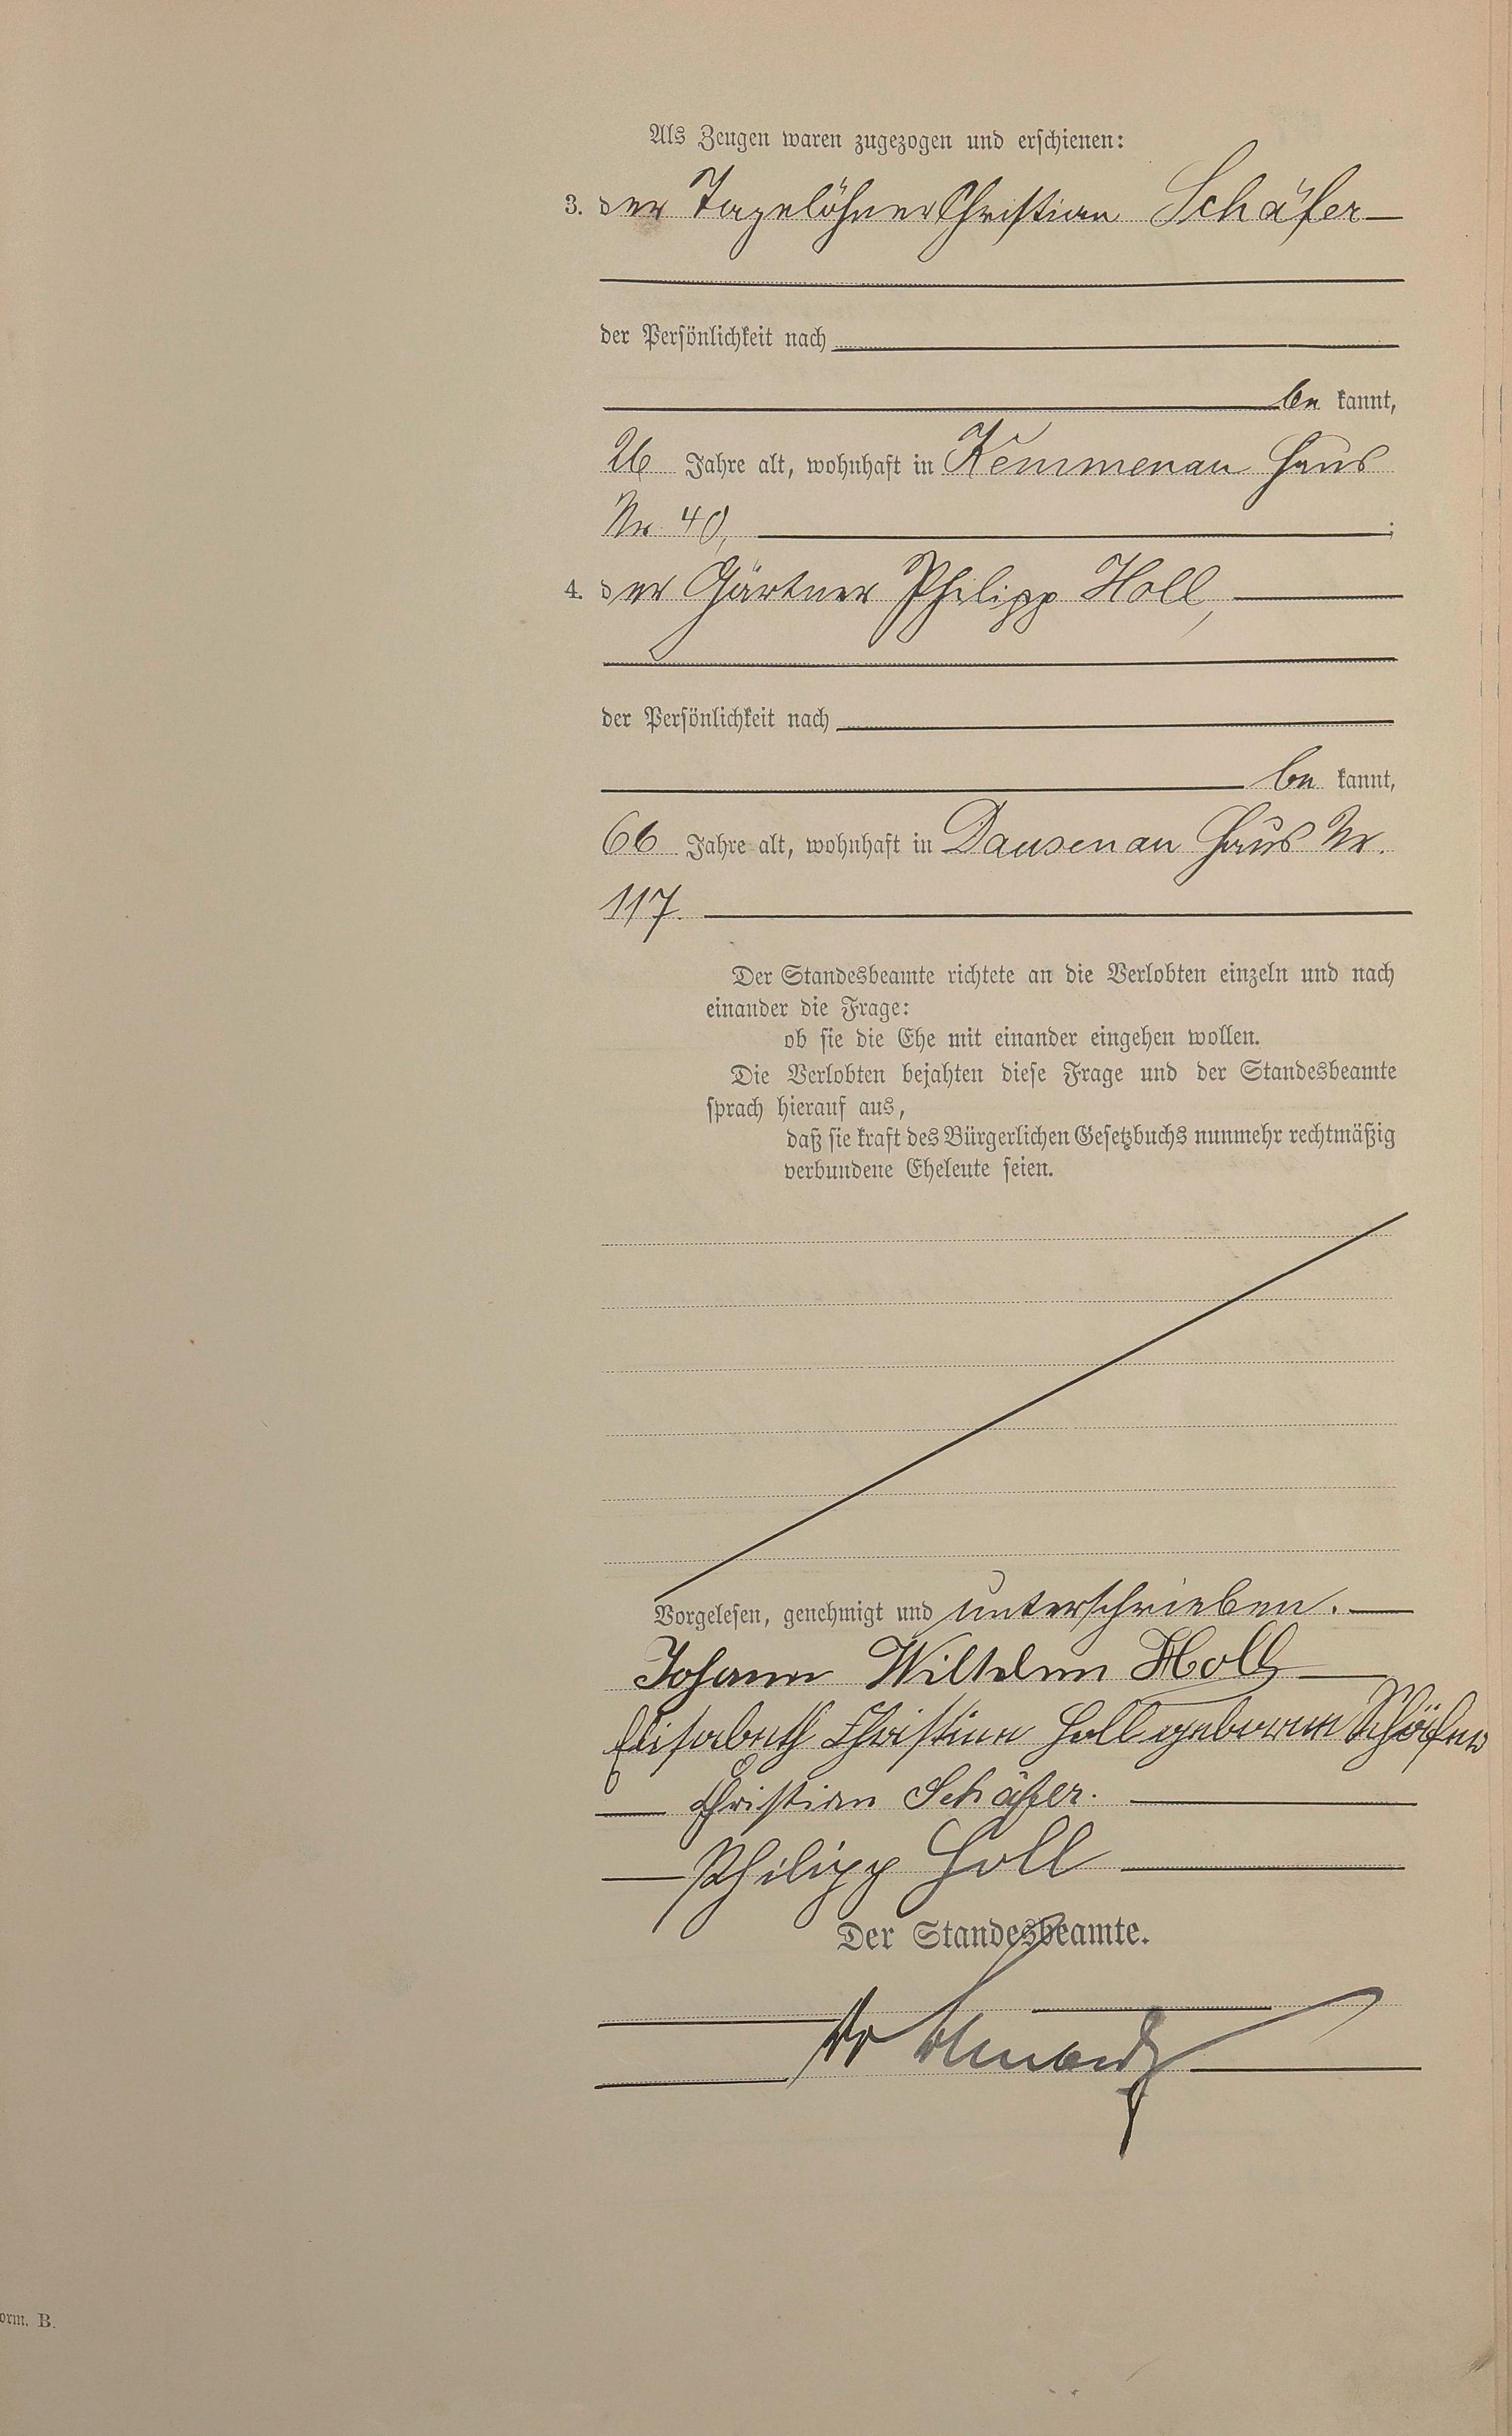 Als Zeugen waren zugezogen und erschienen:
3. der Tagelöhner Christian Schäfer
der Persönlichkeit nach
be kannt,
26 Jahre alt, wohnhaft in Kemmenau Haus
Nr. 40, ;
4. der Gärtner Philipp Holl,
der Persönlichkeit nach
be kannt,
66 Jahre alt, wohnhaft in Dausenau Haus Nr.
117.
Der Standesbeamte richtete an die Verlobten einzeln und nach
einander die Frage:
ob sie die Ehe mit einander eingehen wollen.
Die Verlobten bejahten diese Frage und der Standesbeamte
sprach hierauf aus,
daß sie kraft des Bürgerlichen Gesetzbuchs nunmehr rechtmäßig
verbundene Eheleute seien.
Vorgelesen, genehmigt und unterschrieben.
Johann Wilhelm Holl
Elisabeth Christine Holl geborene Schäfer
Christian Schäfer.
Philipp Holl
Der Standesbeamte.
orm. B.